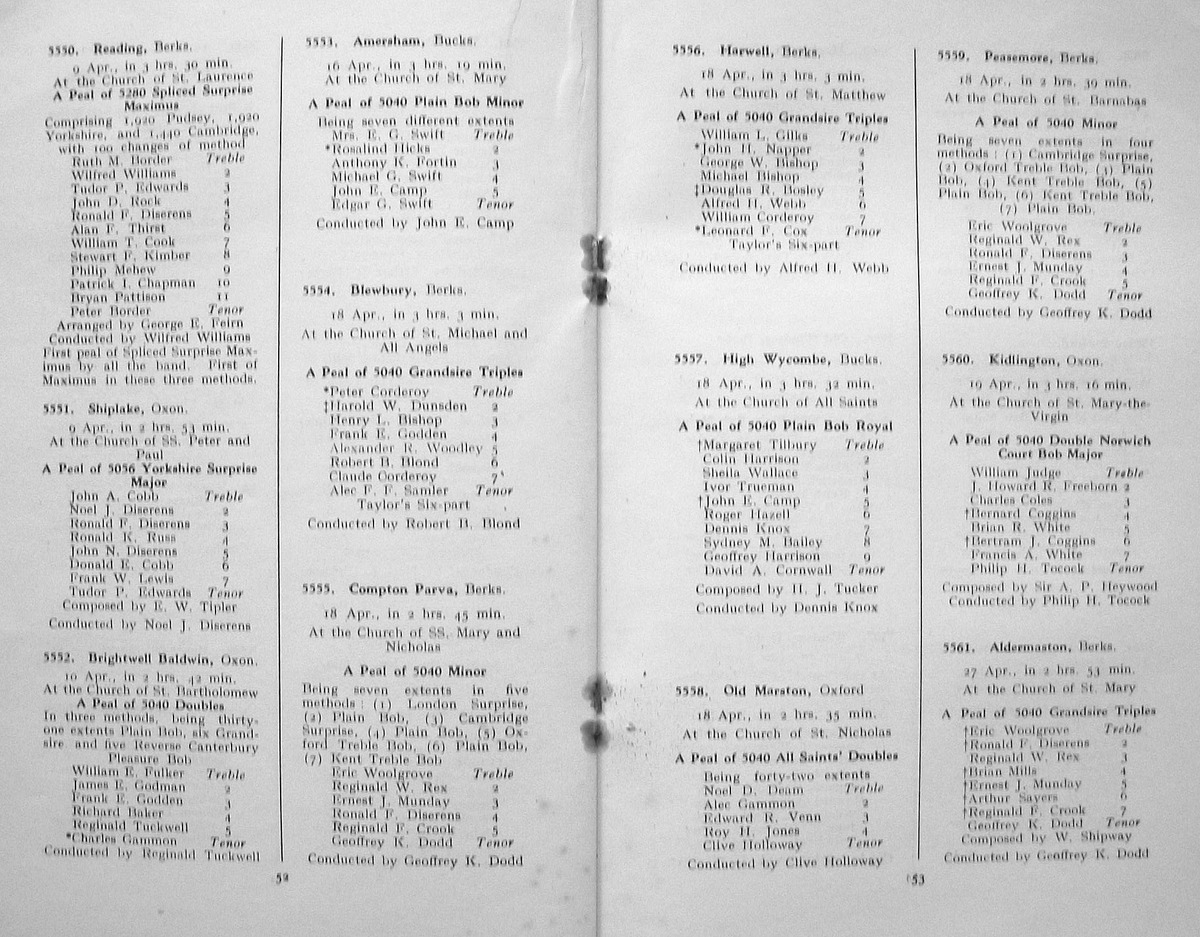 5550. Reading, Berks.
9 Apr., in 3 hrs. 30 min.
At the Church of St. Laurence
A Peal of 5280 Spliced Surprise
Maximus
Comprising 1,920 Pudsey, 1,920
Yorkshire, and 1,440 Cambridge,
with 100 changes of method
Ruth M. Border Treble
Wilfred Williams 2
Tudor P. Edwards 3
John D. Rock 4
Ronald F. Diserens 5
Alan F. Thirst 6
William T. Cook 7
Stewart F. Kimber 8
Philip Mehew 9
Patrick I. Chapman 10
Bryan Pattison 11
Peter Border Tenor
Arranged by George E. Feirn
Conducted by Wilfred Williams
First peal of Spliced Surprise Max-
imus by all the band. First of
Maximus in these three methods.
5551. Shiplake, Oxon.
9 Apr., in 2 hrs. 53 min.
At the Church of SS. Peter and
Paul
A Peal of 5056 Yorkshire Surprise
Major
John A. Cobb Treble
Noel J. Diserens 2
Ronald F. Diserens 3
Ronald K. Russ 4
John N. Diserens 5
Donald E. Cobb 6
Frank W. Lewis 7
Tudor P. Edwards Tenor
Composed by E. W. Tipler
Conducted by Noel J. Diserens
5552. Brightwell Baldwin, Oxon.
10 Apr., in 2 hrs. 42 min.
At the Church of St. Bartholomew
A Peal of 5040 Doubles
In three methods, being thirty-
one extents Plain Bob, six Grand-
sire and five Reverse Canterbury
Pleasure Bob
William E. Fulker Treble
James E. Godman 2
Frank E. Godden 3
Richard Baker 4
Reginald Tuckwell 5
*Charles Gammon Tenor
Conducted by Reginald Tuckwell
5553. Amersham, Bucks.
16 Apr., in 3 hrs. 19 min.
At the Church of St. Mary
A Peal of 5040 Plain Bob Minor
Being seven different extents
Mrs. E. G. Swift Treble
*Rosalind Hicks 2
Anthony K. Fortin 3
Michael G. Swift 4
John E. Camp 5
Edgar G. Swift Tenor
Conducted by John E. Camp
5554. Blewbury, Berks.
18 Apr., in 3 hrs. 3 min.
At the Church of St. Michael and
All Angels
A Peal of 5040 Grandsire Triples
*Peter Corderoy Treble
‡Harold W. Dunsden 2
Henry L. Bishop 3
Frank E. Godden 4
Alexander R. Woodley 5
Robert B. Blond 6
Claude Corderoy 7
Alec F. F. Samler Tenor
Taylor's Six-part
Conducted by Robert B. Blond
5555. Compton Parva, Berks.
18 Apr., in 2 hrs. 45 min.
At the Church of SS. Mary and
Nicholas
A Peal of 5040 Minor
Being seven extents in five
methods : (1) London Surprise,
(2) Plain Bob, (3) Cambridge
Surprise, (4) Plain Bob, (5) Ox-
ford Treble Bob, (6) Plain Bob,
(7) Kent Treble Bob
Eric Woolgrove Treble
Reginald W. Rex 2
Ernest J. Munday 3
Ronald F. Diserens 4
Reginald F. Crook 5
Geoffrey K. Dodd Tenor
Conducted by Geoffrey K. Dodd
52
5556. Harwell, Berks.
18 Apr., in 3 hrs. 3 min.
At the Church of St. Matthew
A Peal of 5040 Grandsire Triples
William L. Gilks Treble
*John H. Napper 2
George W. Bishop 3
Michael Bishop 4
‡Douglas R. Bosley 5
Alfred H. Webb 6
William Corderoy 7
*Leonard F. Cox Tenor
Taylor's Six-part
Conducted by Alfred H. Webb
5557. High Wycombe, Bucks.
18 Apr., in 3 hrs. 32 min.
At the Church of All Saints
A Peal of 5040 Plain Bob Royal
†Margaret Tilbury Treble
Colin Harrison 2
Sheila Wallace 3
Ivor Trueman 4
†John E. Camp 5
Roger Hazell 6
Dennis Knox 7
Sydney M. Bailey 8
Geoffrey Harrison 9
David A. Cornwall Tenor
Composed by H. J. Tucker
Conducted by Dennis Knox
5558. Old Marston, Oxford
18 Apr., in 2 hrs. 35 min.
At the Church of St. Nicholas
A Peal of 5040 All Saints' Doubles
Being forty-two extents
Noel D. Deam Treble
Alec Gammon 2
Edward R. Venn 3
Roy H. Jones 4
Clive Holloway Tenor
Conducted by Clive Holloway
5559. Peasemore, Berks.
18 Apr., in 2 hrs. 39 min.
At the Church of St. Barnabas
A Peal of 5040 Minor
Being seven extents in four
methods : (1) Cambridge Surprise,
(2) Oxford Treble Bob, (3) Plain
Bob, (4) Kent Treble Bob, (5)
Plain Bob, (6) Kent Treble Bob,
(7) Plain Bob.
Eric Woolgrove Treble
Reginald W. Rex 2
Ronald F. Diserens 3
Ernest J. Munday 4
Reginald F. Crook 5
Geoffrey K. Dodd Tenor
Conducted by Geoffrey K. Dodd
5560. Kidlington, Oxon.
19 Apr., in 3 hrs. 16 min.
At the Church of St. Mary-the-
Virgin
A Peal of 5040 Double Norwich
Court Bob Major
William Judge Treble
J. Howard R. Freeborn 2
Charles Coles 3
†Bernard Coggins 4
Brian R. White 5
†Bertram J. Coggins 6
Francis A. White 7
Philip H. Tocock Tenor
Composed by Sir A. P. Heywood
Conducted by Philip H. Tocock
5561. Aldermaston, Berks.
27 Apr., in 2 hrs. 53 min.
At the Church of St. Mary
A Peal of 5040 Grandsire Triples
†Eric Woolgrove Treble
†Ronald F. Diserens 2
Reginald W. Rex 3
†Brian Mills 4
†Ernest J. Munday 5
†Arthur Sayers 6
†Reginald F. Crook 7
Geoffrey K. Dodd Tenor
Composed by W. Shipway
Conducted by Geoffrey K. Dodd
53